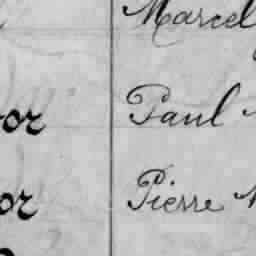 Marcel
or Paul
or Pierre